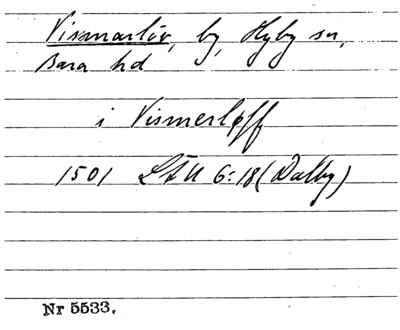 Vismarlöv, by, Hyby sn,
Bara hd
i Vismerløff
1501 LÄU 6:18 (Dalby)
Nr 5533.